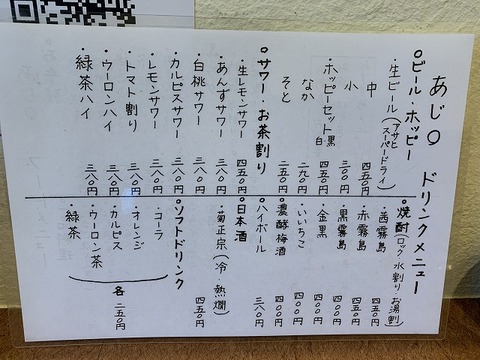 あじ○ ドリンクメニュー
○ビール・ホッピー
・生ビール(アサヒスーパードライ)
中 四五〇円
小 三〇〇円
・ホッピーセット・黒 白 四五〇円
なか 二九〇円
そと 二五〇円
○サワー・お茶割り
・生レモンサワー 四五〇円
・あんずサワー 三八〇円
・白桃サワー 三八〇円
・カルピスサワー 三八〇円
・レモンサワー 三八〇円
・トマト割り 三八〇円
・ウーロンハイ 三八〇円
・緑茶ハイ 三八〇円
○焼酎(ロック 水割り お湯割)
・茜霧島 四五〇円
・赤霧島 四五〇円
・黒霧島 四〇〇円
・金黒 四〇〇円
・いいちこ 四〇〇円
○濃醇梅酒 四〇〇円
○ハイボール 三八〇円
○日本酒
・菊正宗(冷 熱燗) 四五〇円
○ソフトドリンク
・コーラ
・オレンジ
・カルピス
・ウーロン茶
・緑茶
各 二五〇円